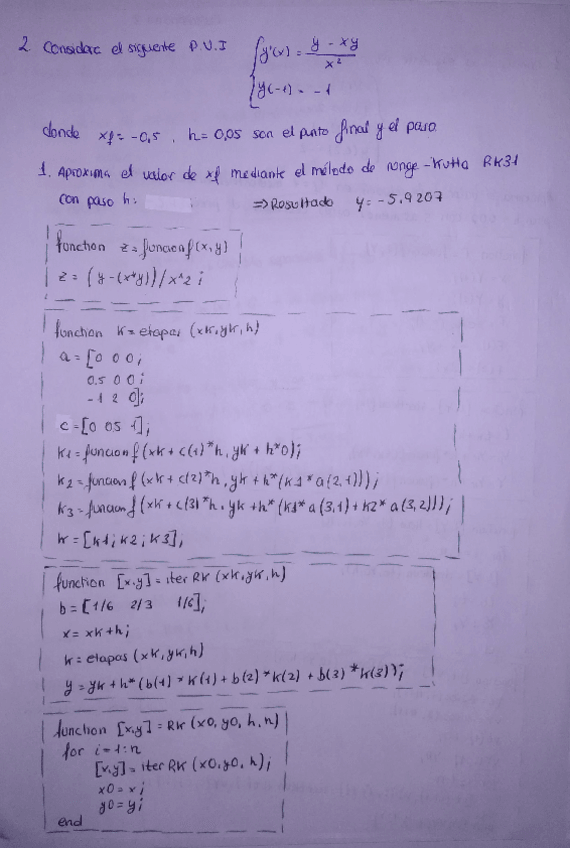 2. Considere el siguiente P.V.I { y'(x) = (y - xy)/x²
y(-1) = -1
donde xf = -0,5 , h = 0,05 son el punto final y el paso.
1. Aproxima el valor de xf mediante el método de runge-kutta RK31
con paso h: ⇒ Resultado y = -5.9207
function z = funcionf(x,y)
z = (y-(x*y))/x^2;
function k = etapas (xk,yk,h)
a = [0 0 0;
0.5 0 0;
-1 2 0];
c = [0 05 1];
k1 = funcionf(xk + c(1)*h, yk + h*0);
k2 = funcionf(xk + c(2)*h, yk + h*(k1*a(2,1)));
k3 = funcionf(xk + c(3)*h, yk + h*(k1*a(3,1) + k2*a(3,2)));
k = [k1; k2; k3];
function [x,y] = iterRK (xk,yk,h)
b = [1/6 2/3 1/6];
x = xk+h;
k = etapas (xk,yk,h)
y = yk + h*(b(1)*k(1) + b(2)*k(2) + b(3)*k(3));
function [x,y] = RK (x0, y0, h, n)
for i=1:n
[x,y] = iterRK (x0,y0,h);
x0 = x;
y0 = y;
end